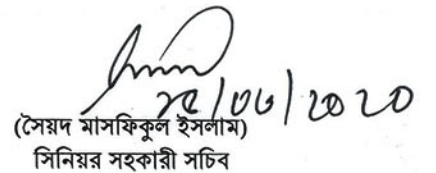 ২৫/০৩/২০২০
(সৈয়দ মাসফিকুল ইসলাম)
সিনিয়র সহকারী সচিব